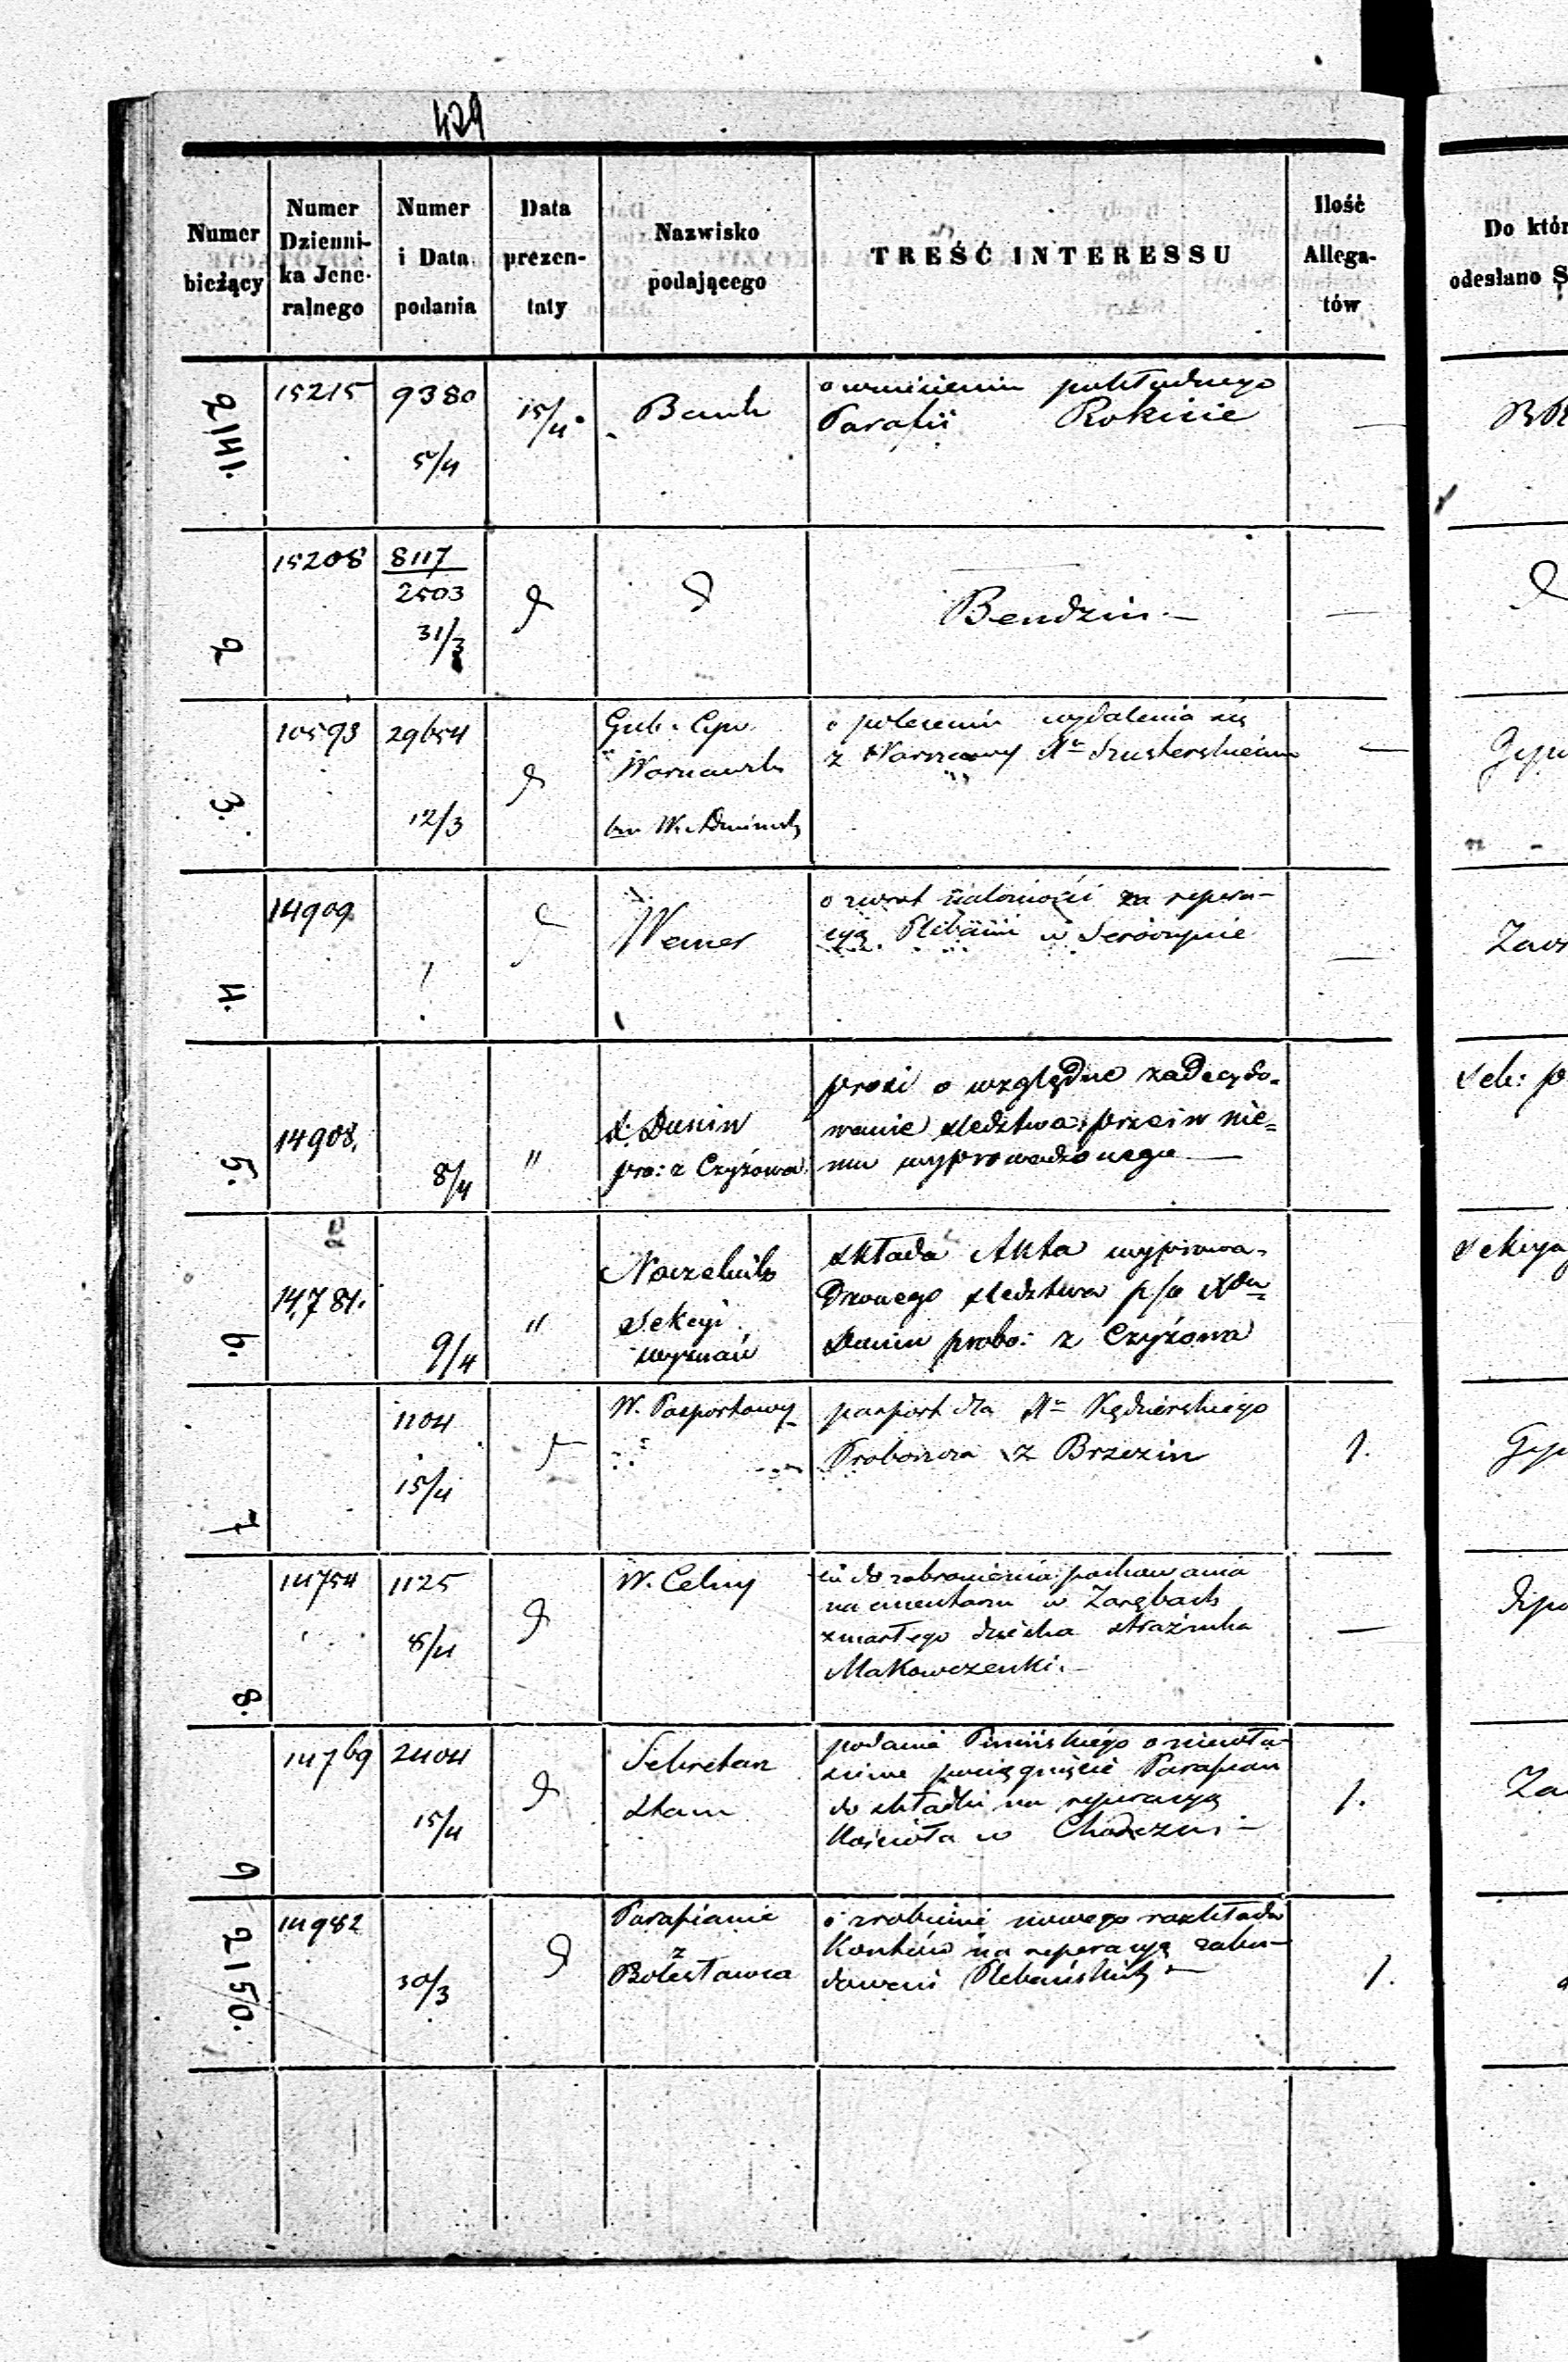 429
Numer bieżący
Numer Dzienni-ka Jene-ralnego
Numer i Data podania
Data prezen-taty
Nazwisko podającego
TREŚĆ INTERESSU
Ilość Allega-tów
Do któr
odesłano S
2141.
15215
9380
5/4
15/4
Bank
o
Parafii Rokicie
2
15208
8117
2503
31/3
Bendzin.—
3.
10593
29654
12/3
Gub. Cyw.
o poleceniu wydalenia się
z Warszawy
4.
14909
Werner
o zwrot należności za repera-
cyą Plebanii w
5.
14908.
8/4
"
X. Dunin
pro: z Czyżowa
prosi o względne zadecydo-
wanie sledztwa przeciw nie-
mu wyprowadzonego —
6.
14,781.
9/4
"
Naczelnik
Sekcyi
wyznań
składa Akta wyprowa-
dzonego sledztwa p/o Xdu
Dunin probo: z Czyżowa
7
1104
15/4
W. Pasportowy
pasport dla Kędzierskiego
Proboszcza z Brzezin
1.
8.
14754
1125
8/4
W. Celny
co do zabronienia pochowania
na cmentarzu w Zarębach
zmarłego dziecka strażnika
Makowczenki.—
9
14769
2404
15/4
Sekretarz
Stanu
podanie o niewła-
ściwe pociągnięcie Parafian
do składki na reperacyą
Kościoła w
1.
2150.
14982
30/3
Parafianie
z
Bolesławca
o zrobienie nowego rozkładu
Kosztów na reperacyą zabu-
dowań Plebańskich —
1.